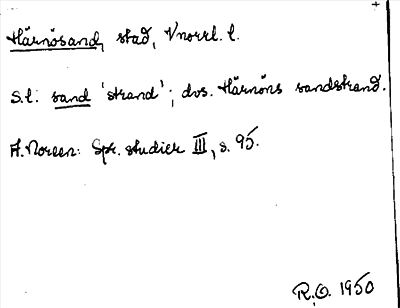 Härnösand, stad, Vnorrl. l.
S.l: sand 'strand'; dvs. Härnöns sandstrand.
A. Noreen: Spr. studier III, s. 95.
R.O. 1950